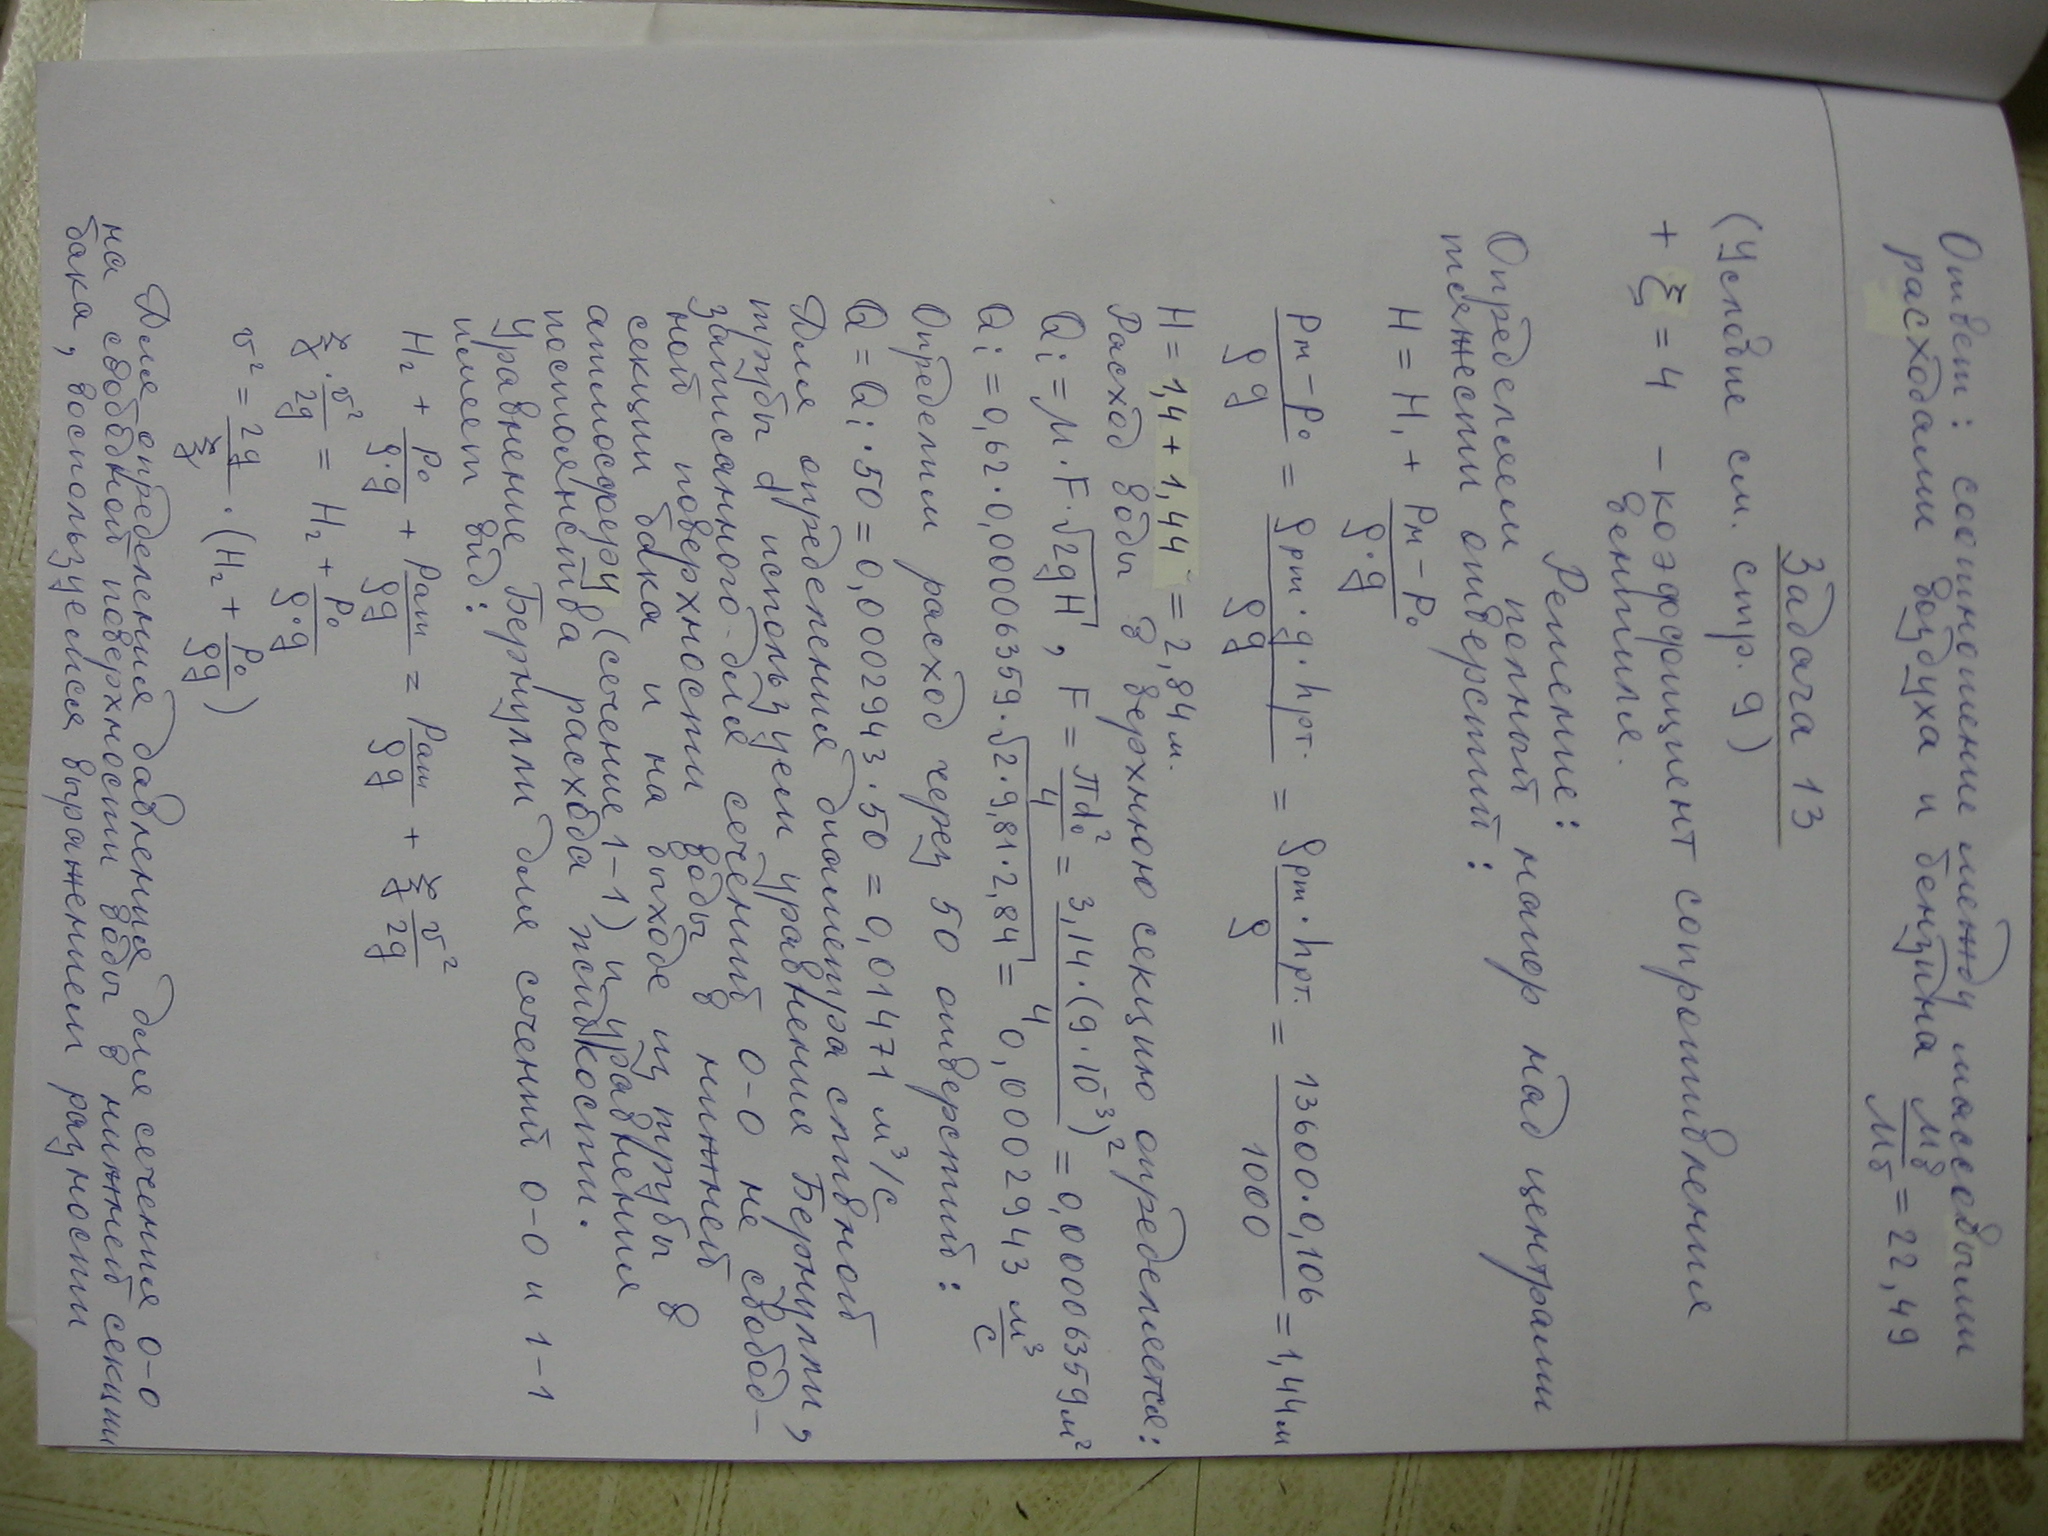 Ответ: соотношение между массовыми
расходами воздуха и бензина Mв/Mб = 22,49
Задача 13
(Условие см. стр. 9)
+ ξ = 4 – коэффициент сопротивления
вентиля.
Решение:
Определяем полный напор над центрами
тяжести отверстий:
H = H₁ + (Pм – P₀)/(ρ·g)
(Pм – P₀)/(ρg) = (ρрт·g·hрт.)/(ρg) = (ρрт·hрт.)/ρ = (13600·0,106)/1000 = 1,44 м
H = 1,4 + 1,44 = 2,84 м.
Расход воды в верхнюю секцию определяется:
Qi = μ·F·√2gH, F = πd₀²/4 = 3,14·(9·10⁻³)²/4 = 0,00006359 м²
Qi = 0,62·0,00006359·√2·9,81·2,84 = 0,0002943 м³/с
Определим расход через 50 отверстий:
Q = Qi·50 = 0,0002943·50 = 0,01471 м³/с
Для определения диаметра сливной
трубы d используем уравнения Бернулли,
записанного для сечений 0–0 на свобод–
ной поверхности воды в нижней
секции бака и на выходе из трубы в
атмосферу (сечение 1–1) и уравнения
постоянства расхода жидкости.
Уравнение Бернулли для сечений 0–0 и 1–1
имеет вид:
H₂ + P₀/(ρ·g) + Pат/(ρg) = Pат/(ρg) + ξ v²/2g
ξ·v²/2g = H₂ + P₀/(ρ·g)
v² = 2g/ξ · (H₂ + P₀/(ρg))
Для определения давления для сечения 0–0
на свободной поверхности воды в нижней секции
бака, воспользуемся выражением разности